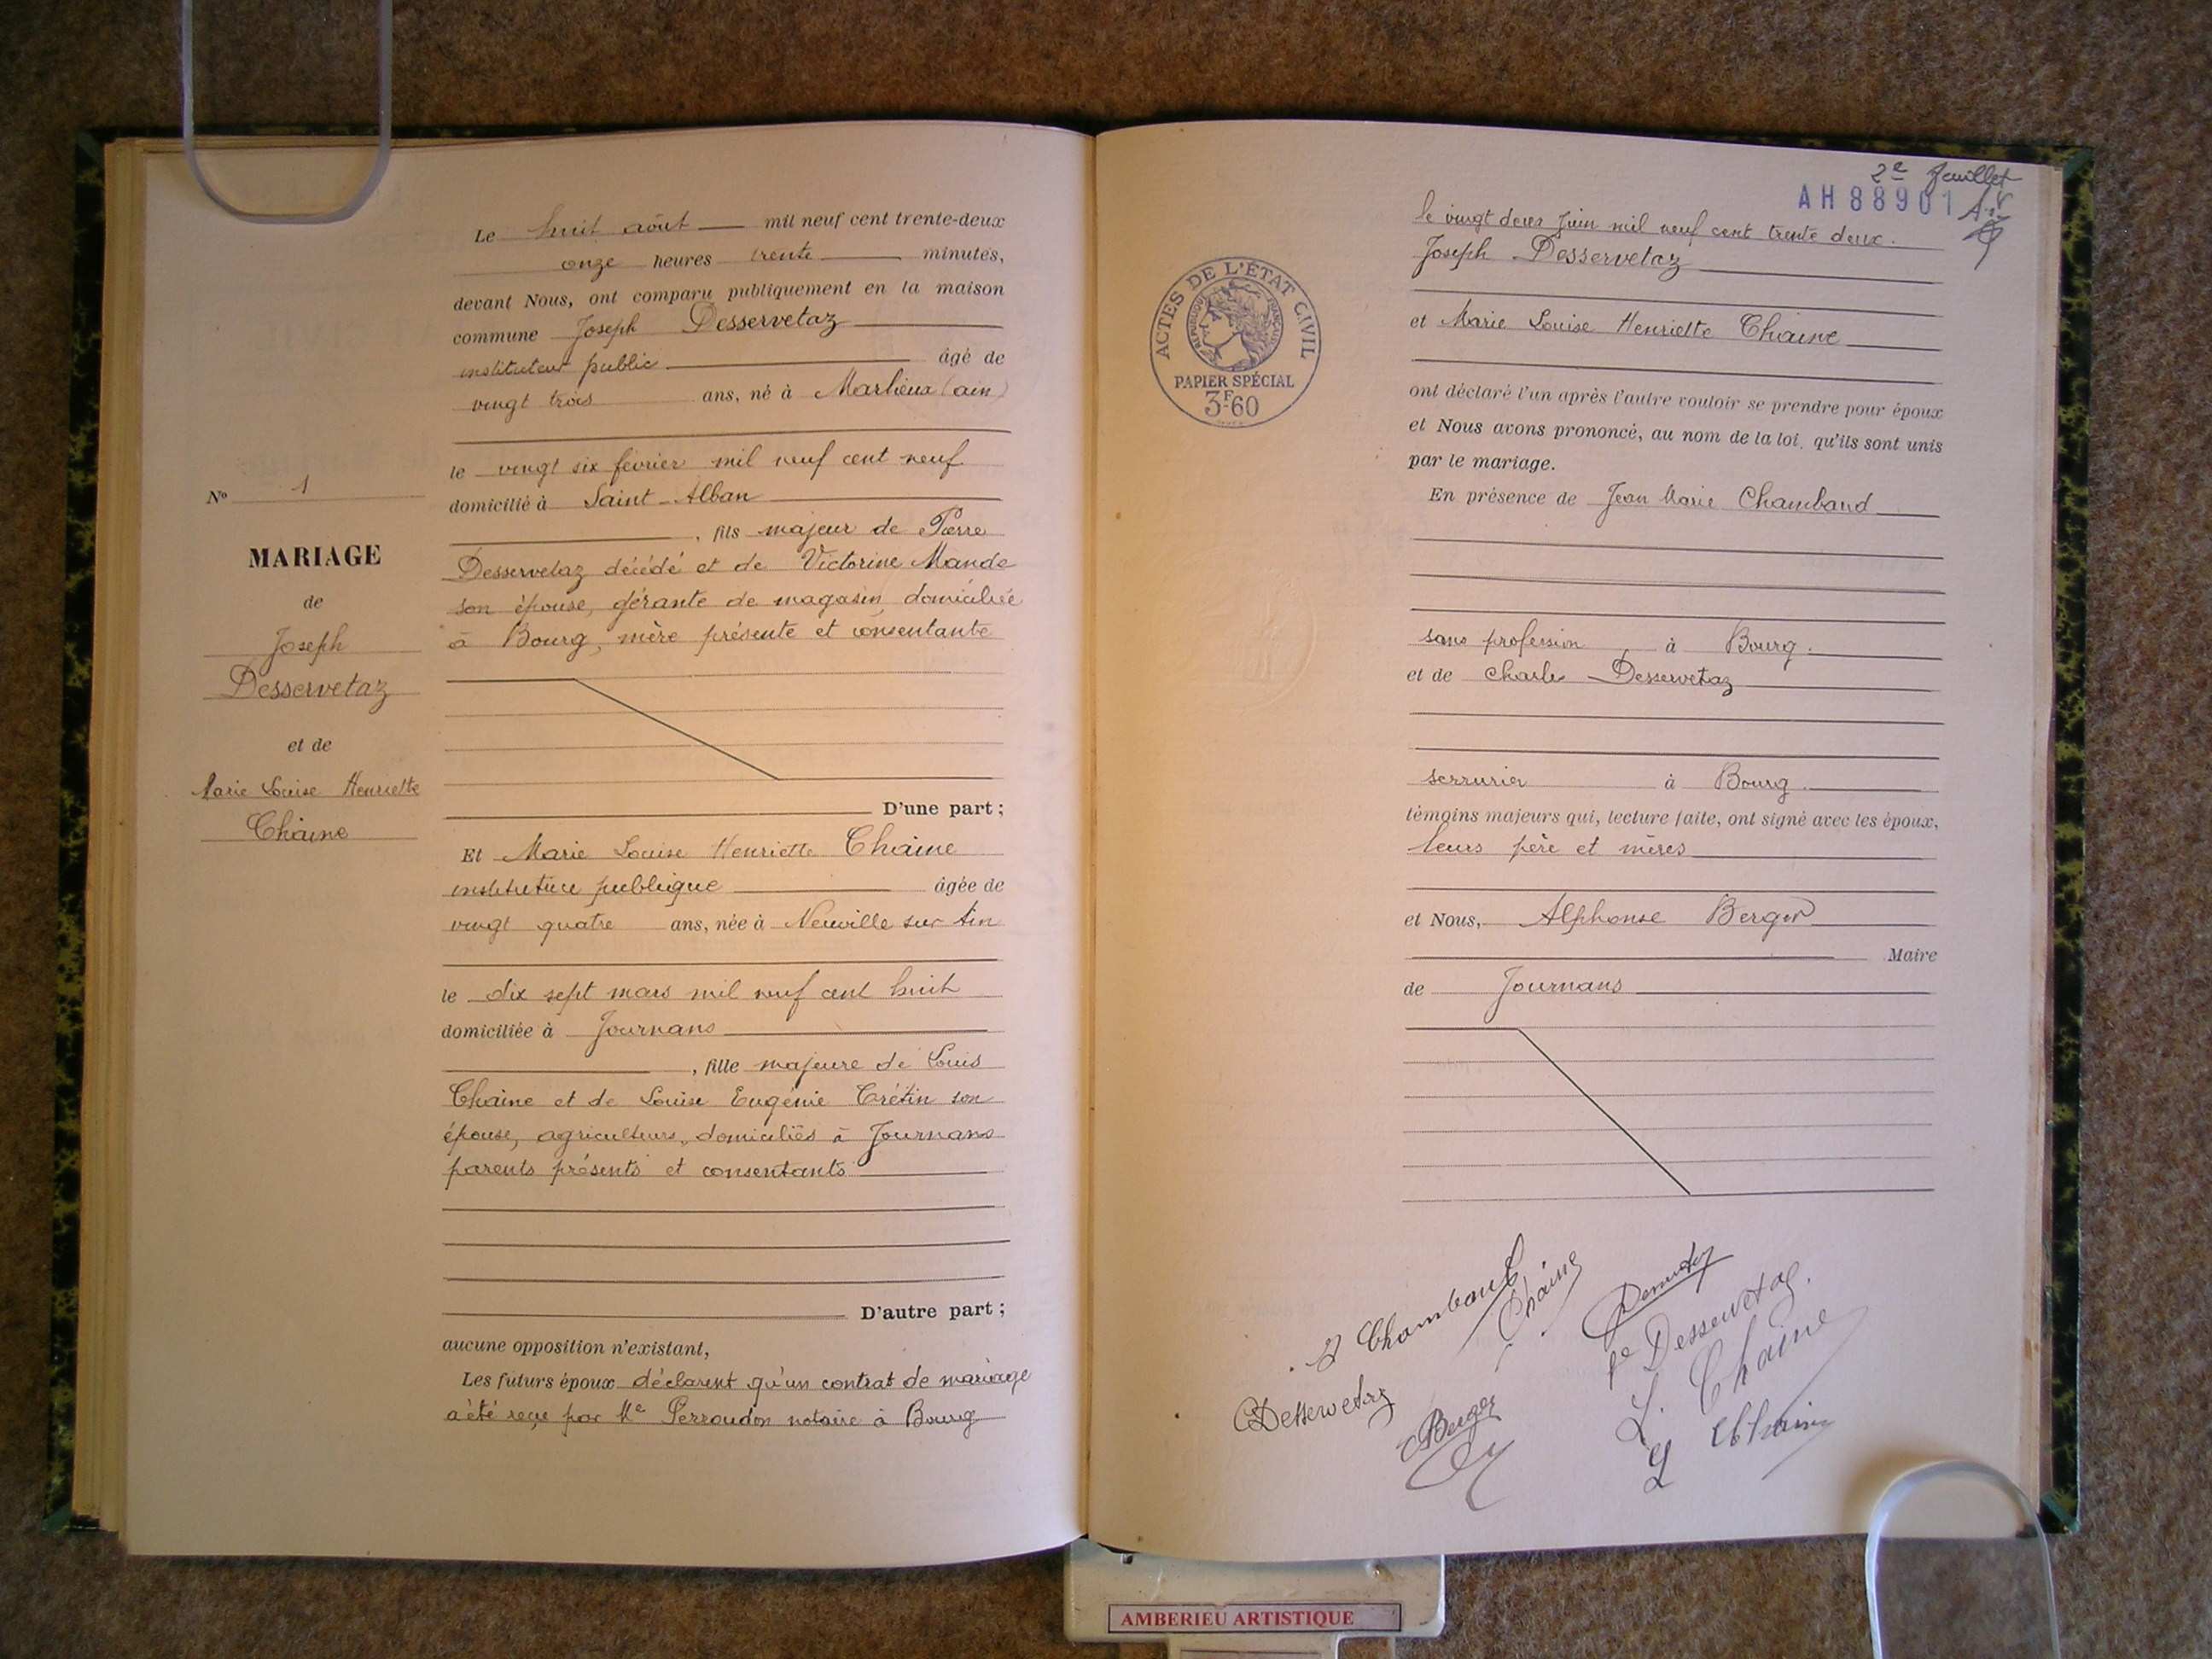 N° 1
MARIAGE
de
Joseph
Desservetaz
et de
Marie Louise Henriette
Chaine
Le huit août mil neuf cent trente-deux
onze heures trente minutes,
devant Nous, ont comparu publiquement en la maison
commune Joseph Desservetaz
instituteur public âgé de
vingt trois ans, né à Marlieux (ain)
le vingt six février mil neuf cent neuf
domicilié à Saint-Alban
, fils majeur de Pierre
Desservetaz décédé et de Victorine Mande
son épouse, gérante de magasin, domiciliée
à Bourg, mère présente et consentante
D'une part ;
Et Marie Louise Henriette Chaine
institutrice publique âgée de
vingt quatre ans, née à Neuville sur Ain
le dix sept mars mil neuf cent huit
domiciliée à Journans
, fille majeure de Louis
Chaine et de Louise Eugénie Crétin son
épouse, agriculteurs, domiciliés à Journans
parents présents et consentants
D'autre part ;
aucune opposition n'existant,
Les futurs époux déclarent qu'un contrat de mariage
a été reçu par Me Perraudon notaire à Bourg
2e feuillet
AH88901
le vingt deux juin mil neuf cent trente deux.
Joseph Desservetaz
et Marie Louise Henriette Chaine
ont déclaré l'un après l'autre vouloir se prendre pour époux
et Nous avons prononcé, au nom de la loi, qu'ils sont unis
par le mariage.
En présence de Jean Marie Chambaud
sans profession à Bourg.
et de Charles Desservetaz
serrurier à Bourg.
témoins majeurs qui, lecture faite, ont signé avec les époux,
leurs père et mères
et Nous, Alphonse Berger
Maire
de Journans
ACTES DE L'ÉTAT CIVIL
RÉPUBLIQUE FRANÇAISE
PAPIER SPÉCIAL
3F60
Chambaud
Chaine
Desservetaz
L. Chaine
L Chaine
CDesservetaz
Berger
AMBERIEU ARTISTIQUE